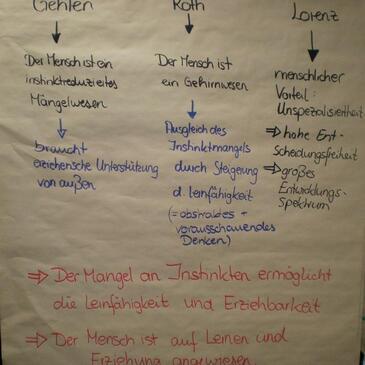 Gehlen
Der Mensch ist ein
instinktreduziertes
Mängelwesen
braucht
erzieherische Unterstützung
von außen
Roth
Der Mensch ist
ein Gehirnwesen
Ausgleich des
Instinktmangels
durch Steigerung
d. Lernfähigkeit
(= abstraktes +
vorausschauendes
Denken)
Lorenz
menschlicher
Vorteil:
Unspezialisiertheit
⇒ hohe Ent-
scheidungsfreiheit
⇒ großes
Entwicklungs-
spektrum
⇒ Der Mangel an Instinkten ermöglicht
die Lernfähigkeit und Erziehbarkeit
⇒ Der Mensch ist auf Lernen und
Erziehung angewiesen